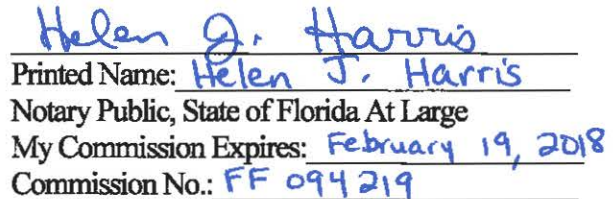 Helen J. Harris
Printed Name: Helen J. Harris
Notary Public, State of Florida At Large
My Commission Expires: February 19, 2018
Commission No.: FF 094219